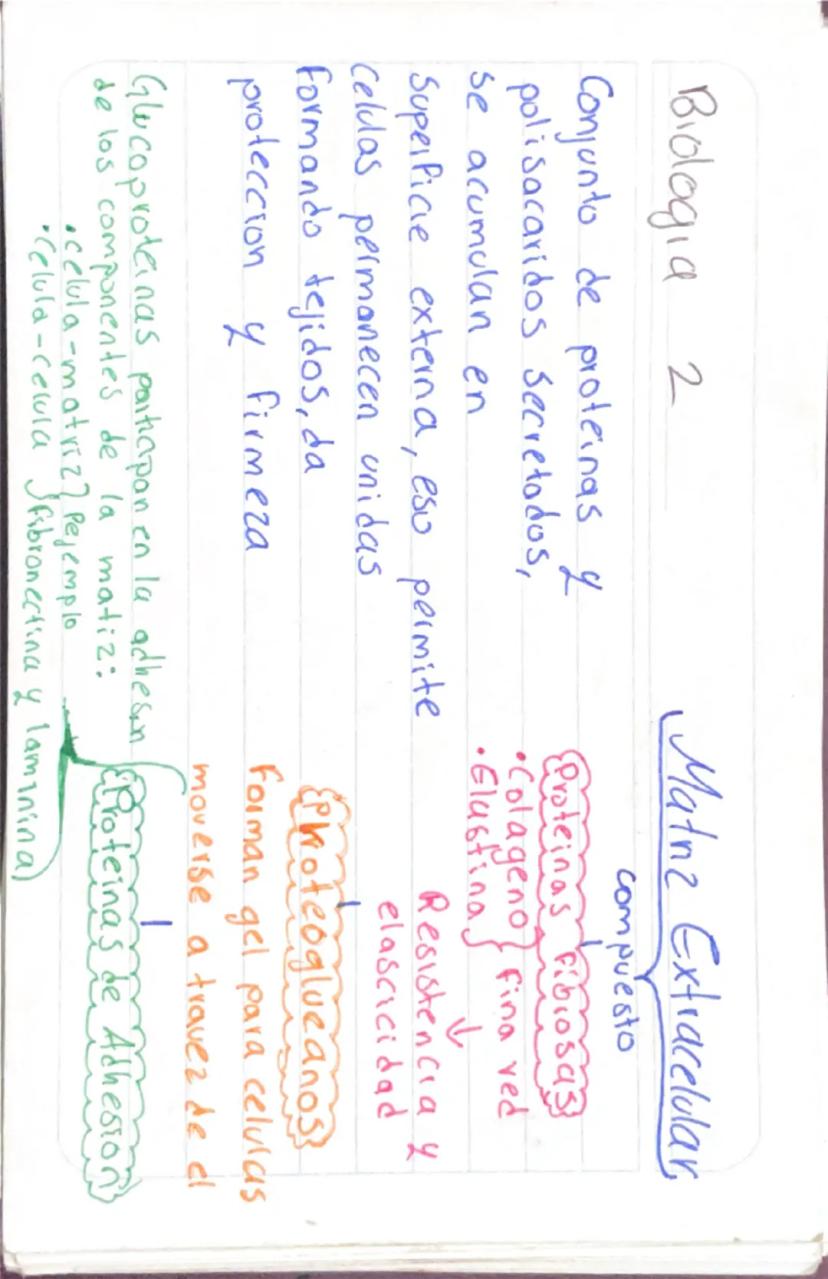 Biologia 2
Matriz Extracelular
Conjunto de proteinas y
polisacaridos secretados,
se acumulan en
superficie externa, eso permite
celulas permanecen unidas
formando tejidos, da
proteccion y firmeza
compuesto
Proteinas Fibrosas
• Colageno } fina red
• Elastina
Resistencia y
elascicidad
Proteoglucanos
Forman gel para celulas
moverse a travez de el
Proteinas de Adhesion
Glucoproteinas participan en la adhesin
de los componentes de la matiz:
• celula-matriz } Pejemplo
• celula-celula } fibronectina y laminina)